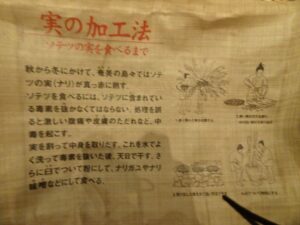 実の加工法
ソテツの実を食べるまで
秋から冬にかけて、奄美の島々ではソテ
ツの実(ナリ)が真っ赤に熟す。
ソテツを食べるには、ソテツに含まれてい
る毒素を抜かなくてはならない。処理を誤
ると激しい腹痛や皮膚のただれなど、中
毒を起こす。
実を割って中身を取りだす。これを水でよ
く洗って毒素を抜いた後、天日で干す。さ
らに臼でついて粉にして、ナリガユやナリ
味噌などにして食べる。